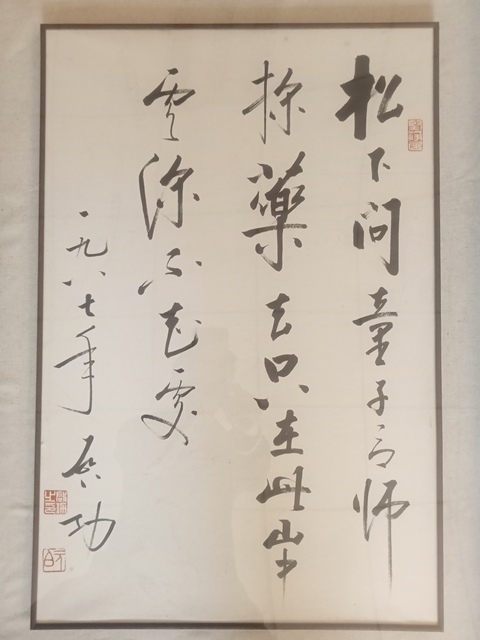 松下問童子言師
採藥去只在此山中
雲深不知處
一九八七年 启功